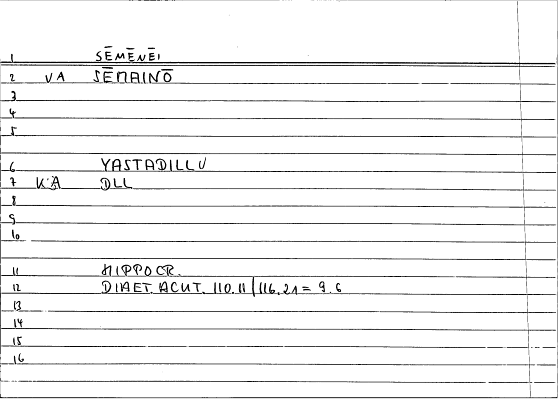 1 SĒMĒNĒI
2 VA SĒMAINŌ
3
4
5
6 YASTADILLU
7 K'A DLL
8
9
10
11 HIPPOCR.
12 DIAET. ACUT. 110.11 | 116.21 = 9.6
13
14
15
16